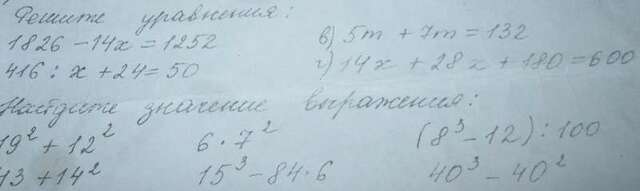 Решите уравнения:
1826 - 14x = 1252 в) 5m + 7m = 132
416 : x + 24 = 50 г) 14x + 28x + 180 = 600
Найдите значение выражения:
19² + 12² 6 · 7² (8³ - 12) : 100
13 + 14² 15³ - 84 · 6 40³ - 40²